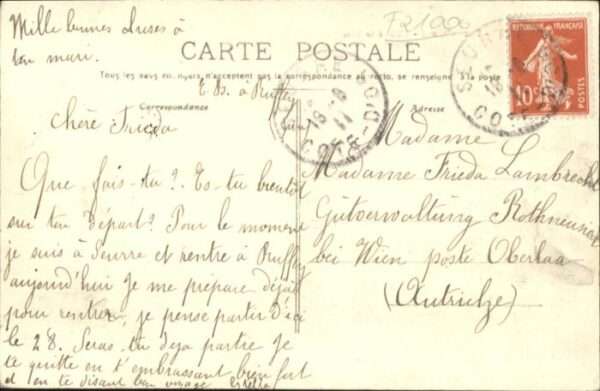 Mille bonnes choses à
ton mari.
F2100
CARTE POSTALE
Tous les pays étrangers n'acceptent pas la correspondance au recto, se renseigner à la poste
REPUBLIQUE FRANÇAISE
10c
POSTES
SEURRE
COTE-D'OR
E. B. à Ruffey
Correspondance
Adresse
Chère Frieda
Que fais-tu? Es-tu bientôt
sur ton départ? Pour le moment
je suis à Seurre et rentre à Ruffey
aujourd'hui Je me prépare déjà
pour rentrer, je pense partir d'ici
le 28. Seras-tu déjà partie Je
te quitte en t'embrassant bien fort
et en te disant bon voyage
Madame
Madame Frieda Lambrecht
Gutverwaltung Rothneusiedl
bei Wien poste Oberlaa
(Autriche)